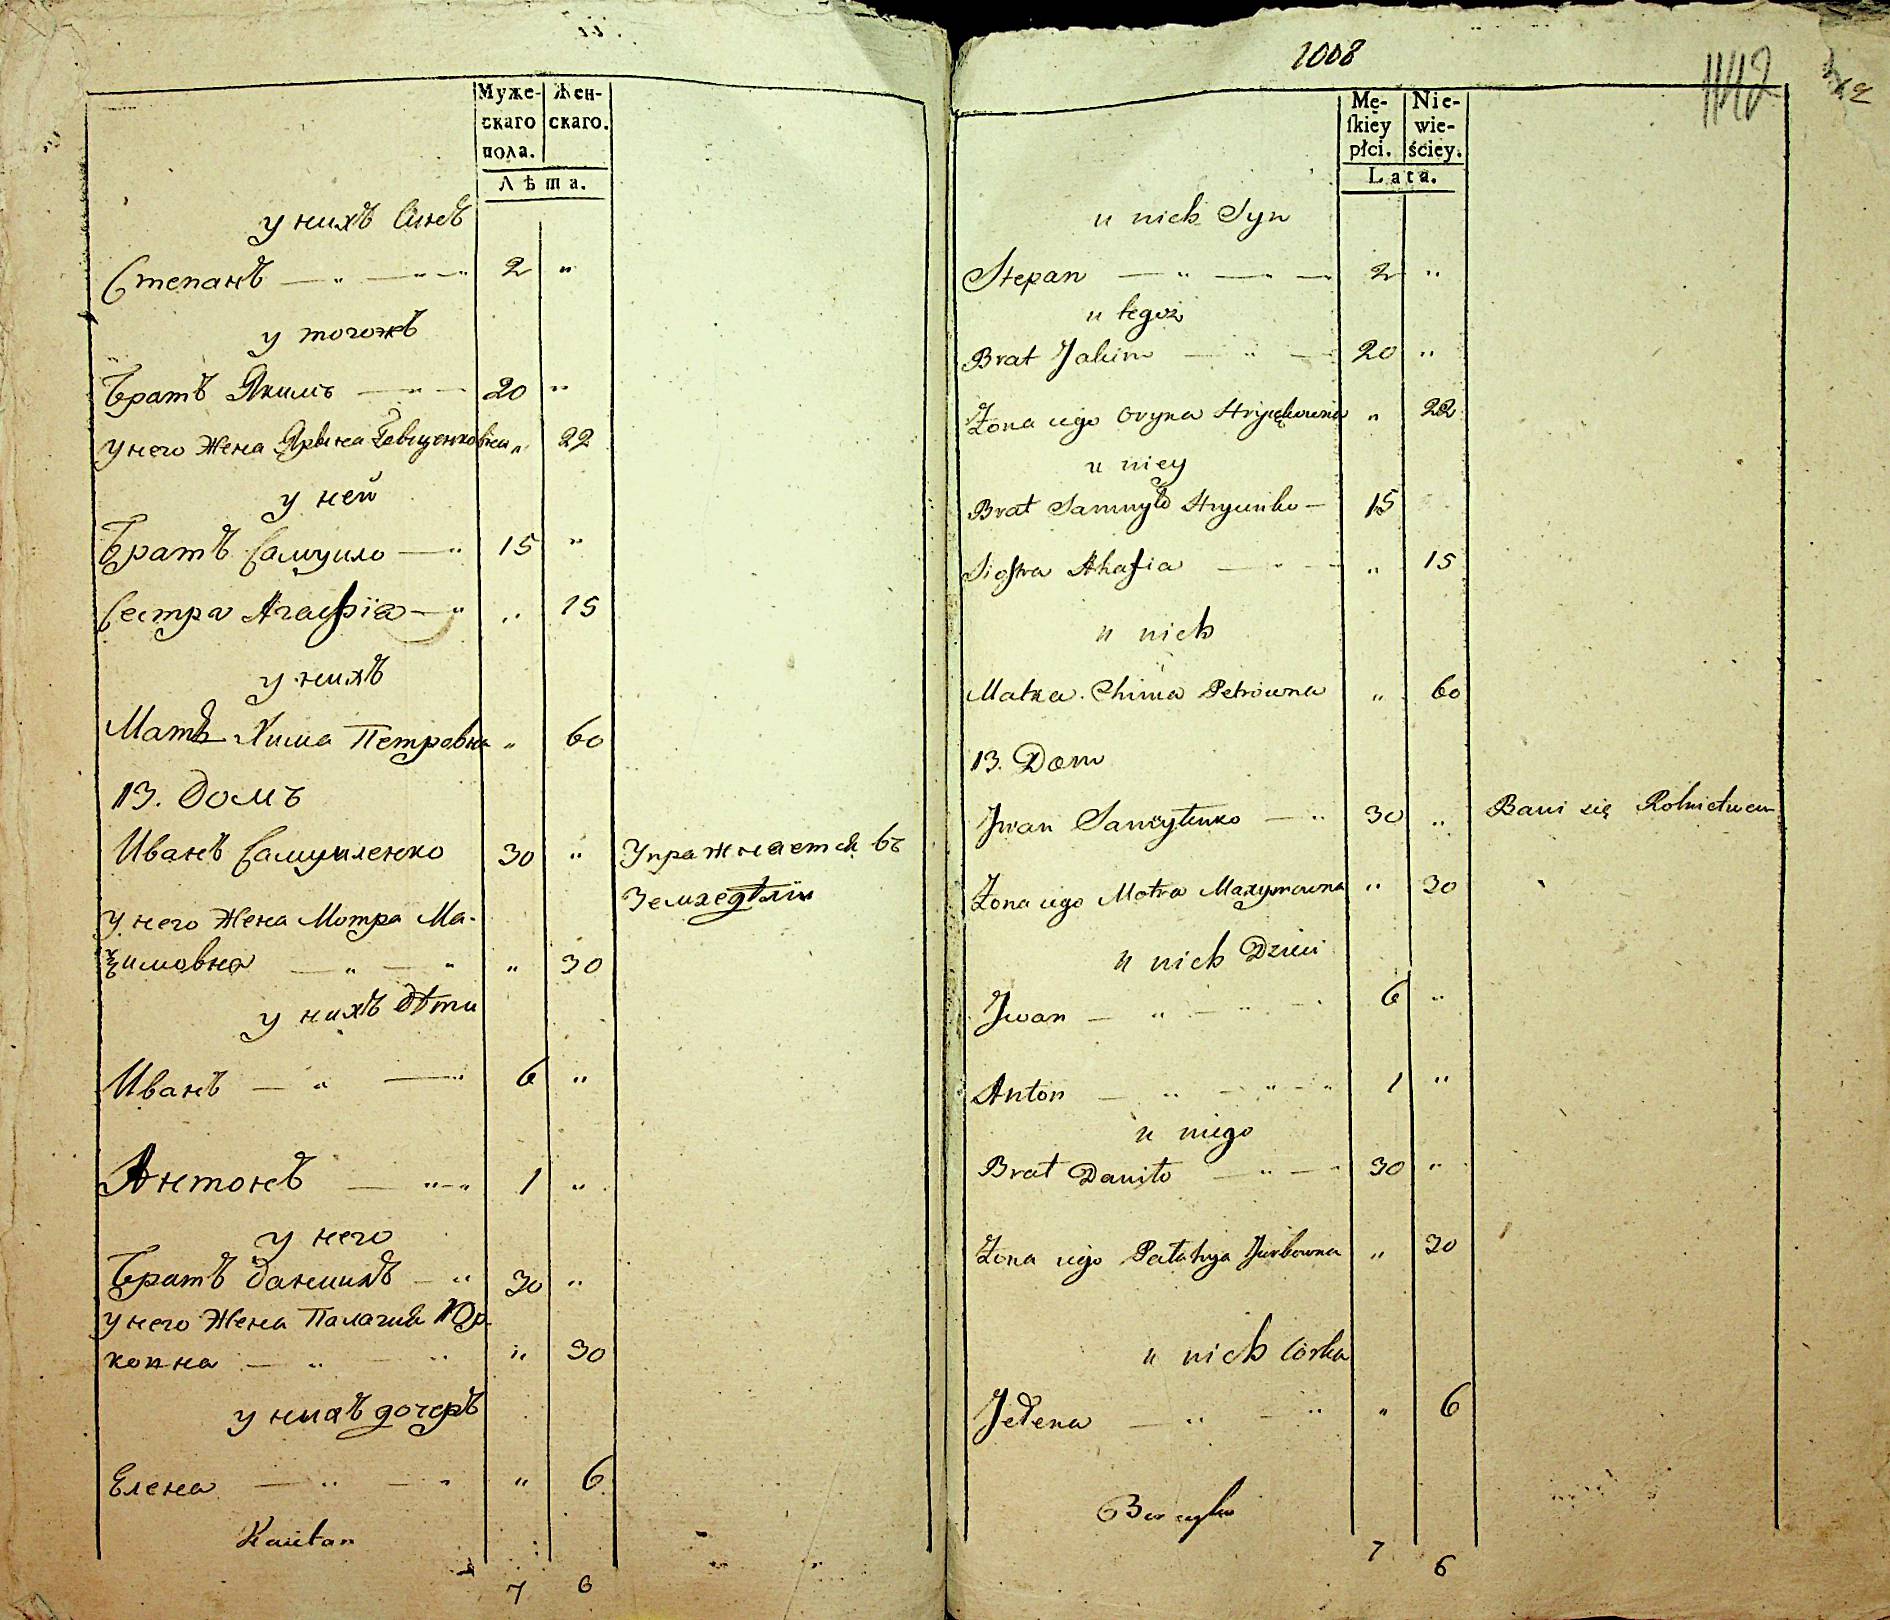 Муже- Жен-
скаго скаго.
пола.
Лѣта.
у нихъ Синъ
Степанъ — " — " — " 2 "
у тогожъ
Братъ Якимъ — " — 20 "
у него Жена Ярына " 22
у ней
Братъ Самуило — " 15 "
Сестра Агафїа — " " 15
у нихъ
Матъ Хима Петровна " 60
13. Домъ
Иванъ Самуиленко 30 " Упражнается въ
Земледѣлїи
у него Жена Мотра Ма-
ѯимовна — " — " " 30
у нихъ дѣти
Иванъ — " — " 6 "
Антонъ — " — " 1 "
у него
Братъ Данилъ — " 30 "
у него Жена Палагия Юр-
ковна — " — " " 30
у нихъ дочеръ
Елена — " — " " 6
7 6
1008
1142
Mę- Nie-
ſkiey wie-
płci. ściey.
Lata.
u nich Syn
Stepan — " — " — 2 "
u tegoż
Brat Jakim — " — 20 "
Żona iego Oryna " 22
u niey
Brat Samuyło Hrycenko — 15
Siostra Ahafia — " — " 15
u nich
Matka Chima Petrowna " 60
13. Dom
Jwan Samuylenko — " 30 " Bawi się Rolnictwem
Żona iego Motra Maxymowna " 30
u nich Dzieci
Jwan — " — " — 6 "
Anton — " — " — " 1 "
u niego
Brat Daniło — " — " 30 "
Żona iego Pałahya Jurkowna " 30
u nich Córka
Jełena — " — " " 6
7
6